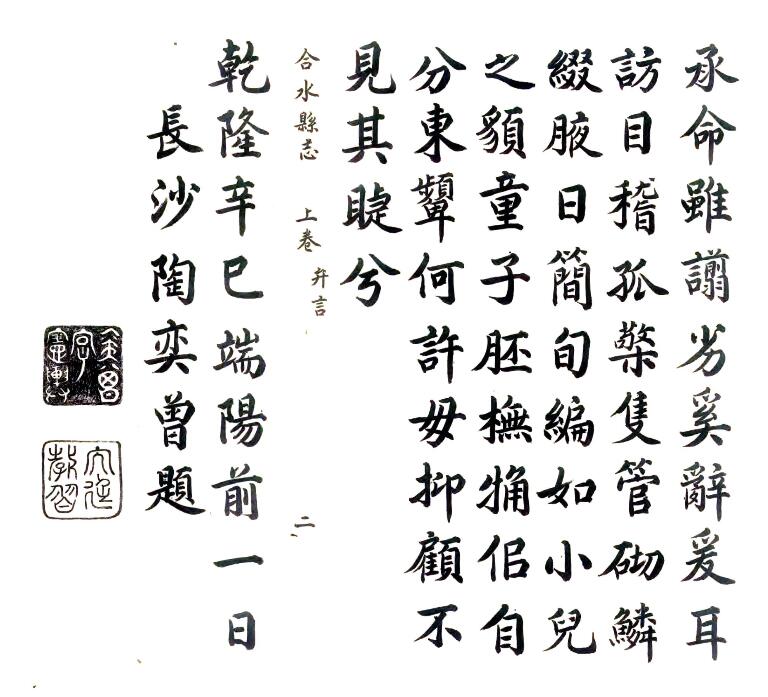 承命雖譾劣奚辭爰耳
訪目稽孤檠隻管砌鱗
綴腋日簡旬編如小兒
之顡童子胚橅觕侶自
分東顰何許毋抑顧不
見其睫兮
合水縣志 上卷 弁言 二
乾隆辛巳端陽前一日
長沙陶奕曾題